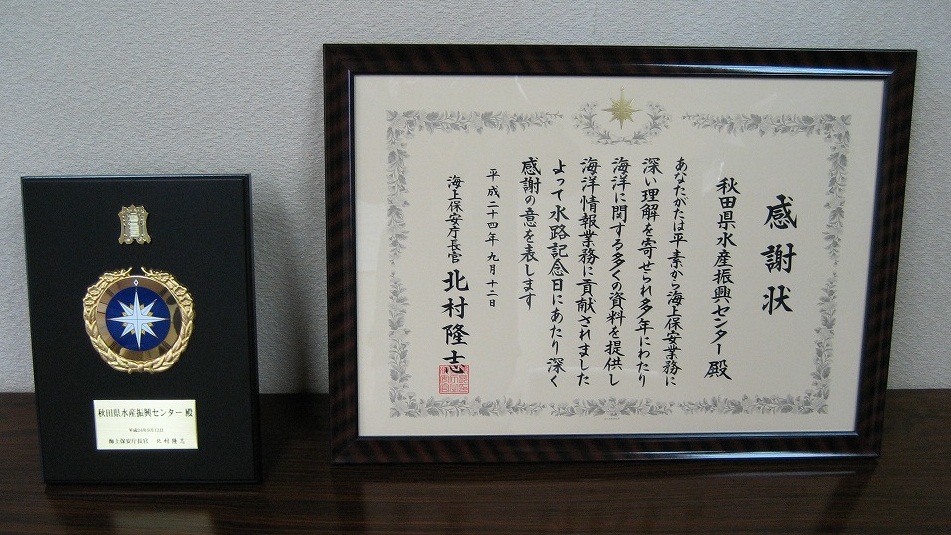 感謝状
秋田県水産振興センター殿
あなたがたは平素から海上保安業務に
深い理解を寄せられ多年にわたり
海洋に関する多くの資料を提供し
海洋情報業務に貢献されました
よって水路記念日にあたり深く
感謝の意を表します
平成二十四年九月十二日
海上保安庁長官 北村隆志
秋田県水産振興センター 殿
平成24年9月12日
海上保安庁長官 北村隆志